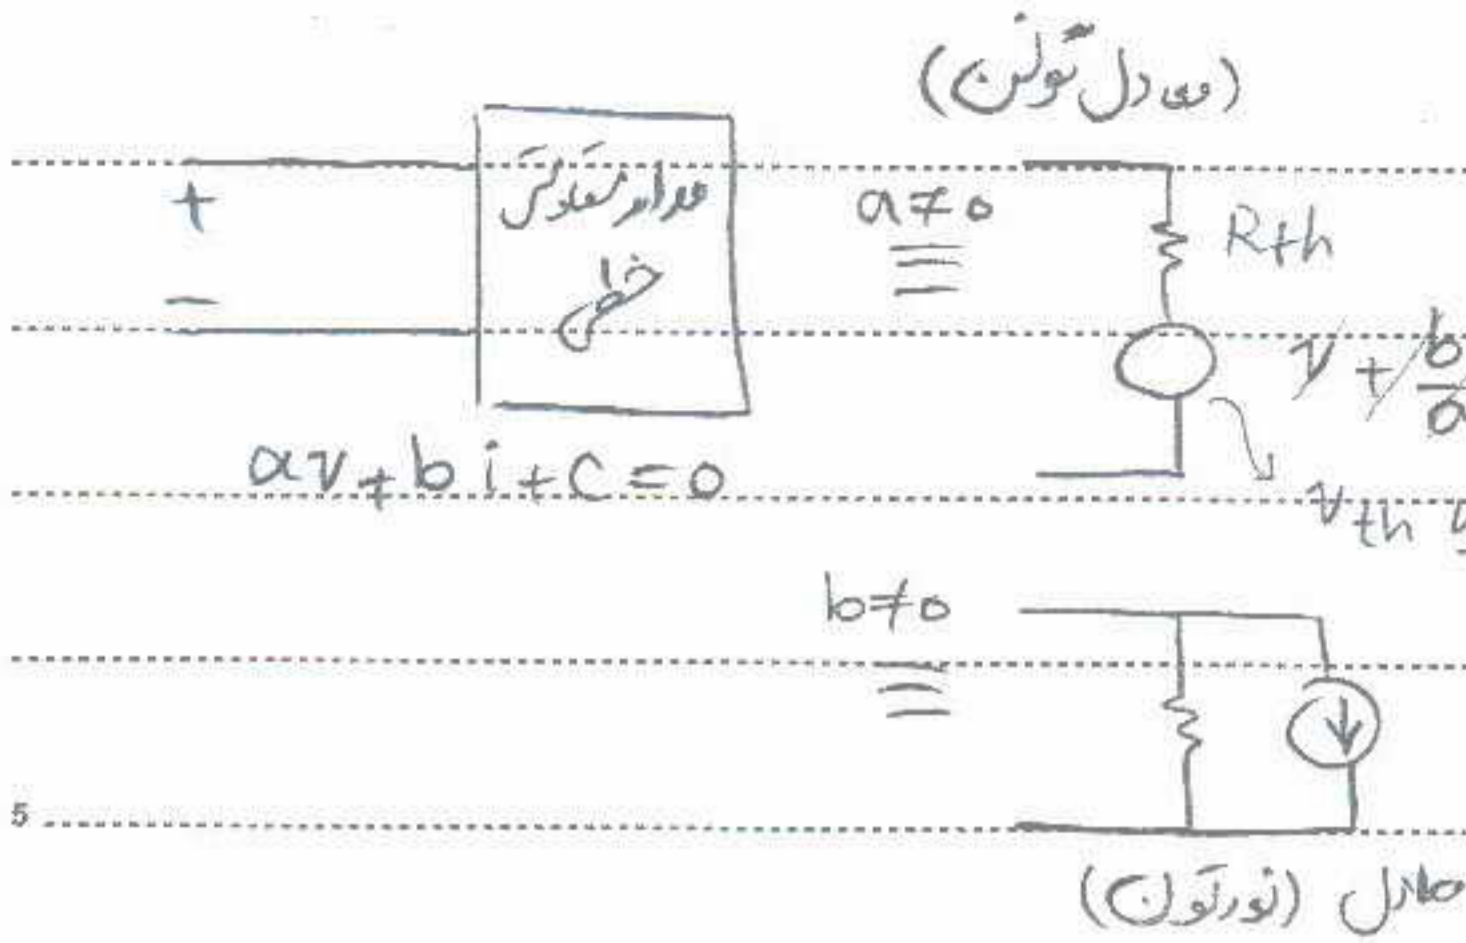 (معادل تونن)
+
مدار مقاومتی
خطی
−
a≠0
≡
Rth
v + b/a
av + bi + c = 0
vth
b≠0
≡
5
معادل (نورتون)